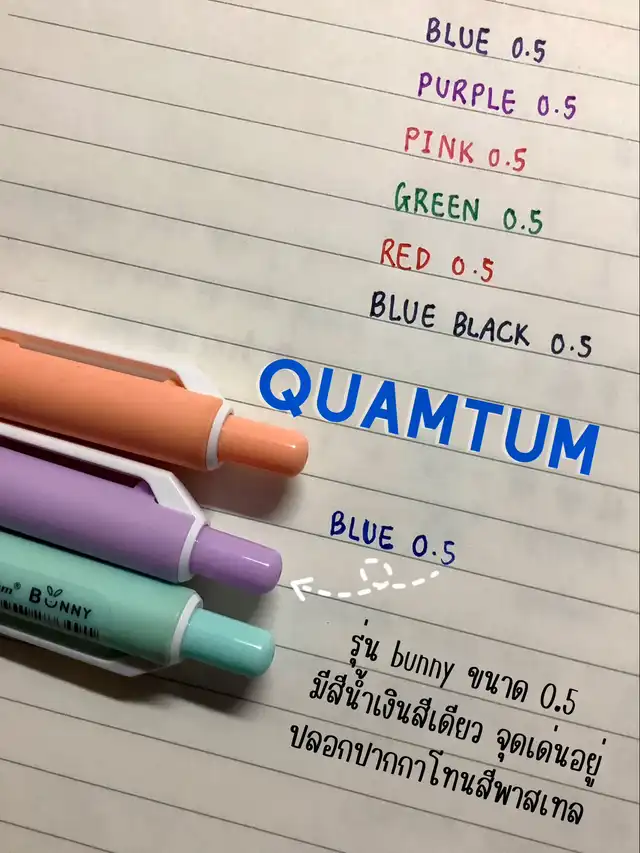 BLUE 0.5
PURPLE 0.5
PINK 0.5
GREEN 0.5
RED 0.5
BLUE BLACK 0.5
QUAMTUM
BLUE 0.5
BUNNY
รุ่น bunny ขนาด 0.5
มีสีน้ำเงินสีเดียว จุดเด่นอยู่
ปลอกปากกาโทนสีพาสเทล